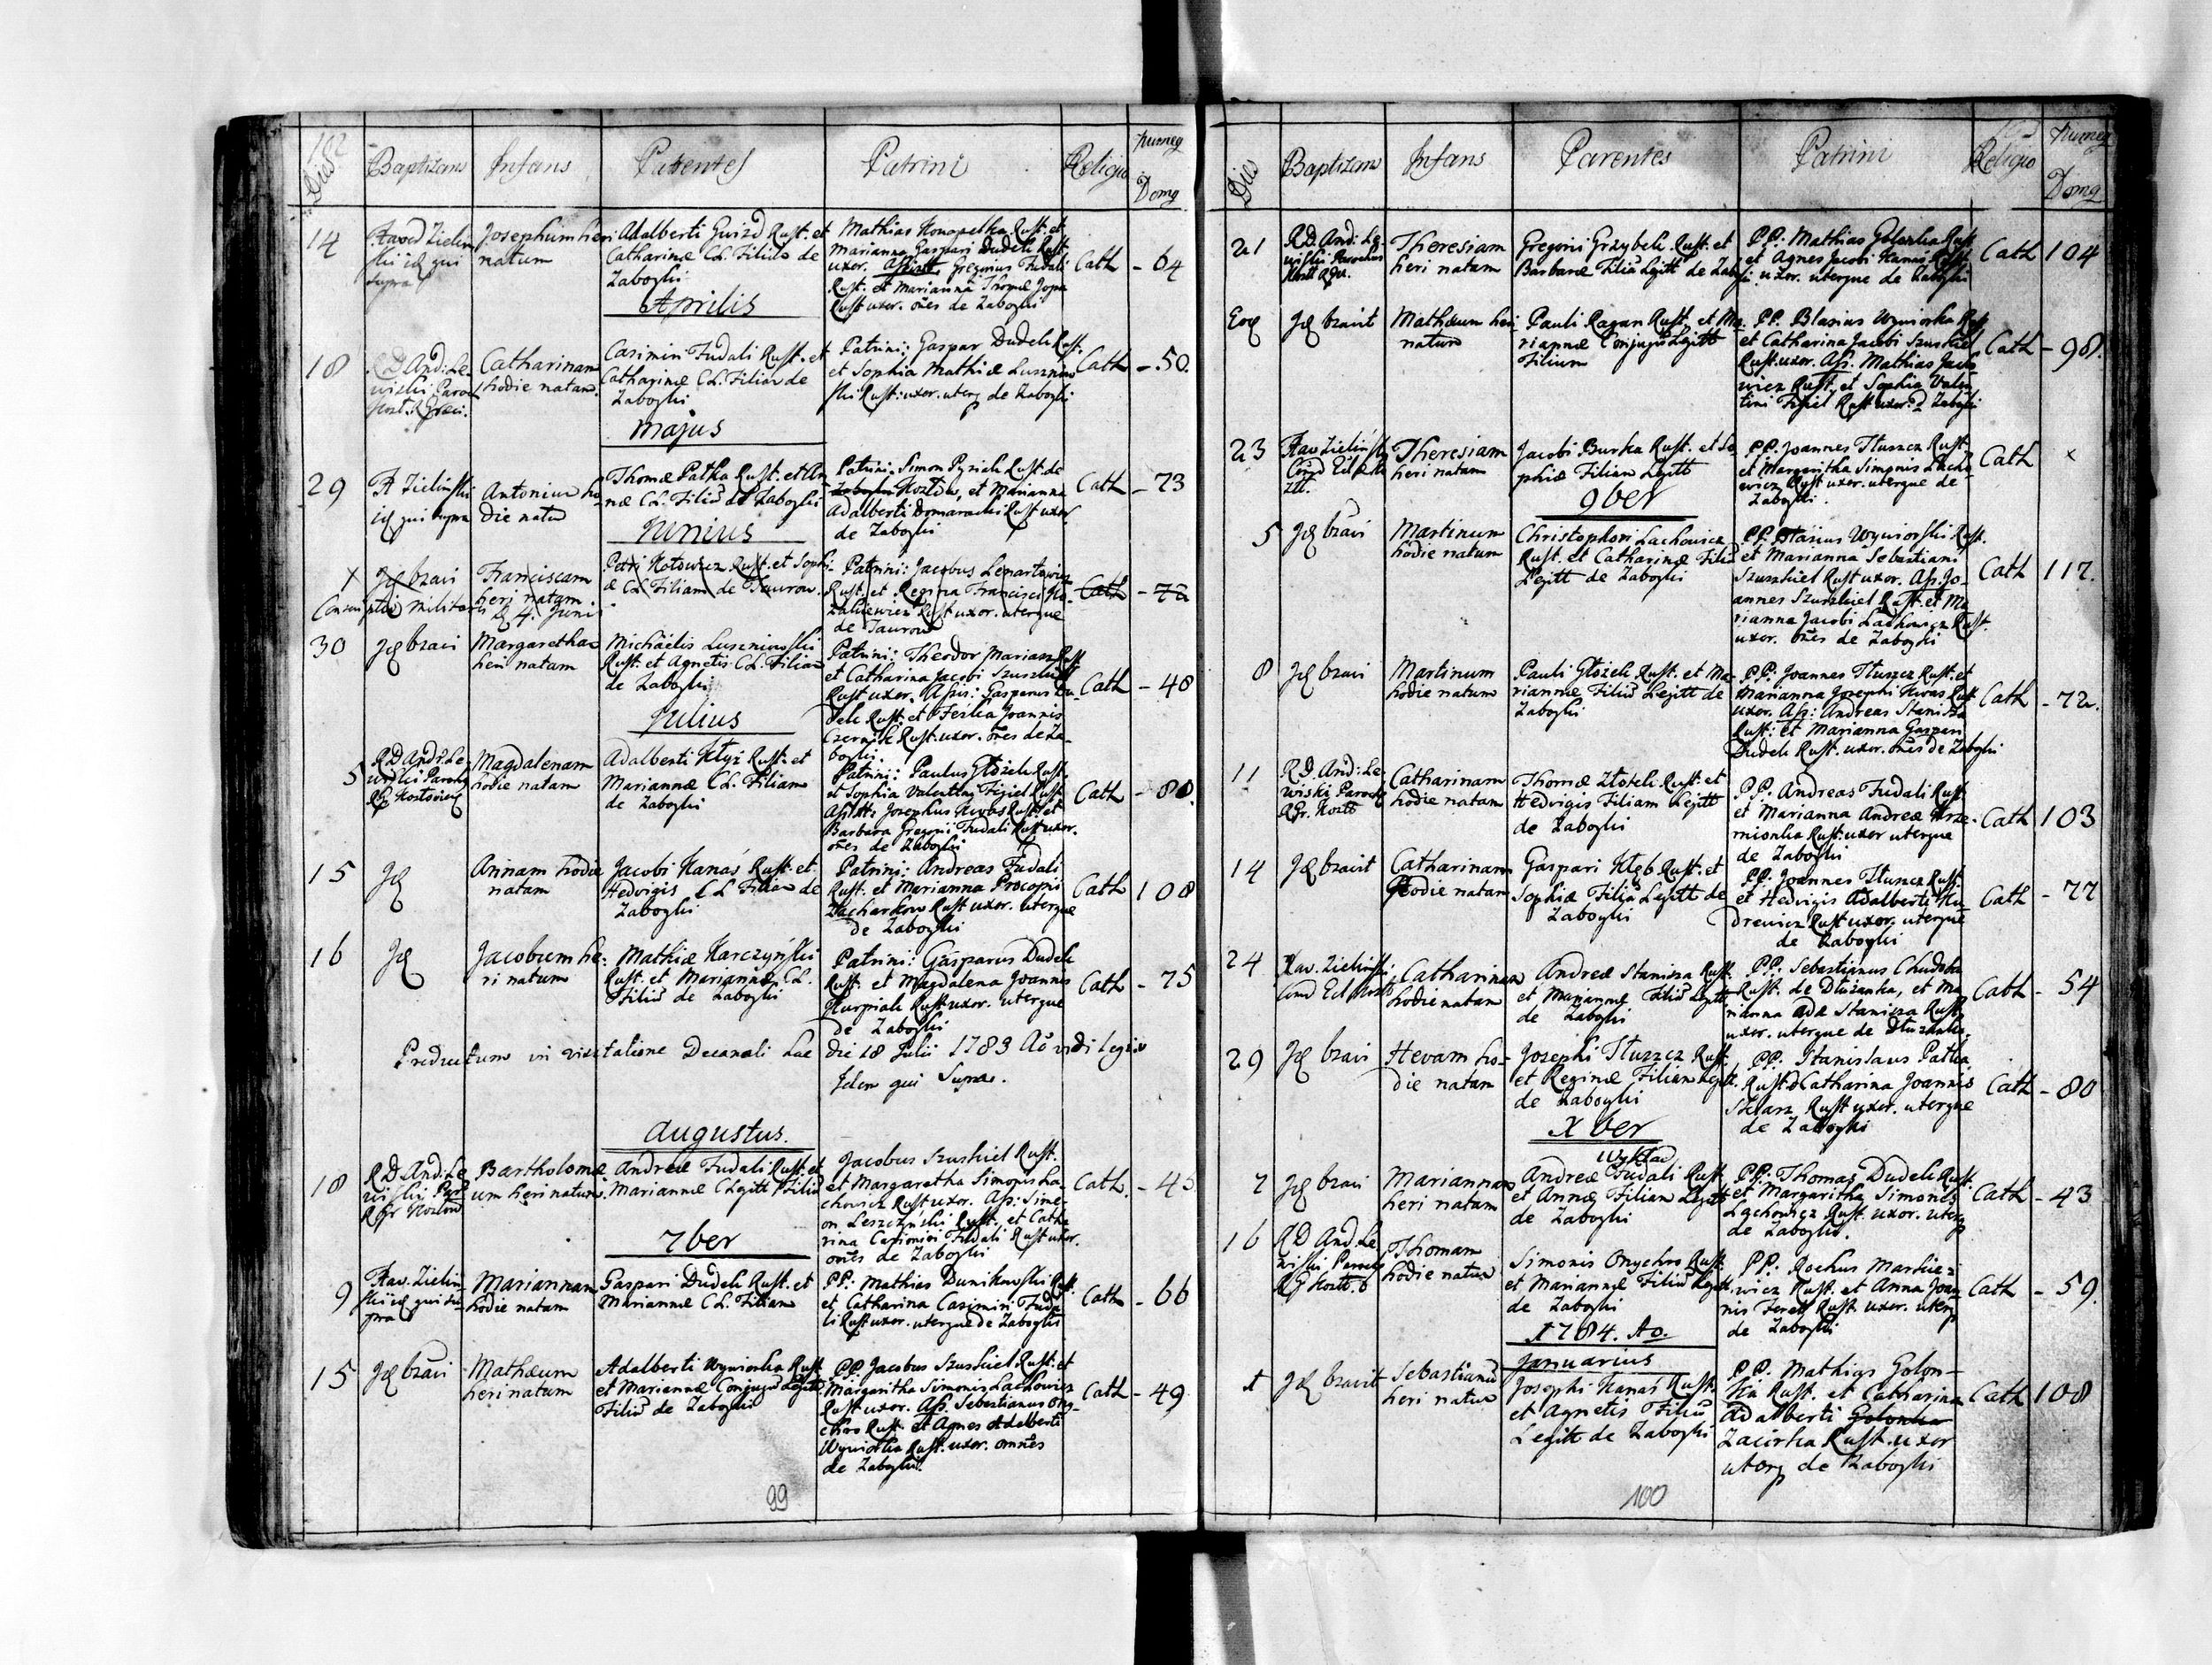 Dies Baptizans Infans Parentes Patrini Religio Numeq Domq
14
Xaved Zielin
ski id qui
supra
Josephum heri
natum
Adalberti Gwizd Rust. et
Catharinæ CL. Filius de
Zaboyki
Mathias Konopelka Rust. et
Marianna Gaspari Dudek Rust.
uxor. Assistt. Gregorius Fudali
Rust. et Marianna Thomæ
Rust uxor. oes de Zaboyki
Cath - 64
Aprilis
18
R D And: Le
wiski Paroch
Kozt.
Catharinam
hodie natam
Casimiri Fudali Rust. et
Catharinæ CL. Filiam de
Zaboyki
Patrini: Gaspar Dudek Rust.
et Sophia Mathiæ Lusznow
ski Rust: uxor. uterq de Zaboyki
Cath - 50.
Majus
29
X Zielinski
id qui supra
Antonium ho
die natū
Thomæ Patka Rust. et An
næ CL. Filiū de Zaboyki
Patrini. Simon Pysiak Rust. de
Kozlow, et Marianna
Adalberti Domaracki Rust uxor
de Zaboyki
Cath - 73
Junius
X
Id bzavi
Franciscam
heri natam
Petri Kotowicz Rust. et Sophi
æ CL Filiam de Taurow.
Patrini: Jacobus Lenartowicz
Rust. et Regina Francisci
Rust uxor. uterque
de Taurow
Cath - 72
4. Juni
30
Id bzavi
Margaretham
heri natam
Michaelis Luszniewski
Rust. et Agnetis CL. Filiam
de Zaboyki
Patrini: Theodor Mariasz Rust
et Catharina Jacobi Szuszkiel
Rust uxor. Assis: Gasparus Du
dek Rust. et Feska Joannis
Rust. uxor. oes de Za
boyki.
Cath - 48
Julius
5
R D And: Le
wiski Paroch
Magdalenam
hodie natam
Adalberti Kłyż Rust. et
Mariannæ CL. Filiam
de Zaboyki
Patrini: Paulus Głożek Rust.
et Sophia Valentini Figiel Rust.
Asistt: Josephus Kwas Rust: et
Barbara Gregorii Fudali Rust uxor.
oes de Zaboyki
Cath - 80.
15
Id
Annam hodie
natam
Jacobi Kanas Rust. et
Hedvigis CL Filiam de
Zaboyki
Patrini: Andreas Fudali
Rust. et Marianna Procopii
Zacharkow Rust uxor. uterque
de Zaboyki
Cath 108
16
Id
Jacobum he:
ri natum
Mathiæ Karczyński
Rust. et Mariannæ CL.
Filiū de Zaboyki
Patrini: Gasparus Dudek
Rust. et Magdalena Joannis
Kurpiak Rust uxor. uterque
de Zaboyki
Cath - 75
Productum in visitatione Decanali Lae die 18 Julii 1783
Idem qui Supra.
Augustus.
18
R D And: Le
wiski Par
Bartholomæ
um heri natum
Andreæ Fudali Rust. et
Mariannæ CLegitt Filiū
Jacobus Szuskiel Rust.
et Margaretha Simonis La
chowicz Rust uxor. Ass: Sime-
on Leszczyński Rust. et Catha
rina Casimiri Fudali Rust uxor.
omes de Zaboyki
Cath. - 43
7ber
9
Xav. Zielin
ski id qui su
pra
Mariannam
hodie natam
Gaspari Dudek Rust. et
Mariannæ CL. Filiam
PP: Mathias Dunikowski Rust.
et Catharina Casimiri Fuda
li Rust uxor. uterque de Zaboyki
Cath - 66
15
Id bzavi
Mathæum
heri natum
Adalberti Wyniorka Rust
et Mariannæ Conjugū Legitt
Filiū de Zaboyki
PP Jacobus Szuskiel Rust: et
Margaritha Simonis Lachowicz
Rust uxor. Ass. Sebestianus Ony
chro Rust. et Agnes Adalberti
Wyniorka Rust. uxor. omnes
de Zaboyki.
Cath - 49
99
Dies Baptizans Infans Parentes Patrini Religio Numeq Domq
21
R D. And: Le
wiski Parochus
Theresiam
heri natam
Gregorii Grzybek Rust. et
Barbaræ Filiā Legitt de Zaboy
PP. Mathias Golonka Rust
et Agnes Jacobi Kanas Rust.
uxor. uterque de Zaboyki
Cath 104
Eoq
Id bzavit
Mathæum heri
natum
Pauli Ragan Rust. et Ma-
riannæ Conjugū Legitt
Filium
PP. Blasius Wyniorka Rust
et Catharina Jacobi Szuskiel
Rust. uxor. Ass. Mathias Jach
wicz Rust. et Sophia Valen
tini Figiel Rust uxor. d Zaboyki
Cath - 98.
23
Xav Zieliński
Theresiam
heri natam
Jacobi Burka Rust. et So
phiæ Filiam Legitt
PP. Joannes Tłuszcz Rust.
et Margaritha Simonis Lacho
wicz Rust uxor. uterque de
Zaboyki.
Cath x
9ber
5
Id bzavi
Martinum
hodie natum
Christophori Lachowicz
Rust. et Catharinæ Filiū
Legitt de Zaboyki
PP. Blasius Wyniorski Rust.
et Marianna Sebestiani
Szuszkiel Rust uxor. Ass. Jo-
annes Szuszkiel Rust. et Ma
rianna Jacobi Lachowicz Rust.
uxor. omes de Zaboyki
Cath 117.
8
Id bzavi
Martinum
hodie natum
Pauli Głożek Rust. et Ma-
riannæ Filiū Legitt de
Zaboyki
PP: Joannes Tłuszcz Rust. et
Marianna Josephi Kwas Rust
uxor. Ass: Andreas Stanisza
Rust: et Marianna Gaspari
Dudek Rust. uxor. omes de Zaboyki
Cath - 72.
11
R D. And: Le
wiski Paroch
RGr. Kozlt
Catharinam
hodie natam
Thomæ Złotek Rust. et
Hedvigis Filiam Legitt
de Zaboyki
PP. Andreas Fudali Rust
et Marianna Andreæ Krze-
mionka Rust. uxor uterque
de Zaboyki
Cath 103
14
Id bzavit
Catharinam
hodie natam
Gaspari Kłęb Rust. et
Sophiæ Filiā Legitt de
Zaboyki
PP. Joannes Tłuszcz Rust
et Hedvigis Adalberti
Rust uxor. uterque
de Zaboyki
Cath - 77
24
Xav. Zieliński
Catharinam
hodie natam
Andreæ Stanisza Rust.
et Mariannæ Filiū Legitt
de Zaboyki
PP. Sebastianus Chudoba
Rust. de Dłużanka, et Ma
rianna Adæ Stanisza Rust
uxor. uterque de Dłużanka.
Cath - 54
29
Id bzavi
Hevam ho-
die natam
Josephi Tłuszcz Rust.
et Reginæ Filiam Legitt.
de Zaboyki
PP. Stanislaus Patka
Rust & Catharina Joannis
Rust uxor. uterque
de Zaboyki
Cath - 80
X ber
7
Id bzavi
Mariannam
heri natam
Wyktad
Andreæ Fudali Rust
et Annæ Filiam Legitt
de Zaboyki
PP: Thomas Dudek Rust
et Margaritha Simonis
Lachowicz Rust. uxor. uterq
de Zaboyki.
Cath - 43
16
R D And: Le
wiski Paroch
Thomam
hodie natum
Simonis Onychro Rust
et Mariannæ Filiū Legitt.
de Zaboyki
PP: Rochus Markie-
wicz Rust. et Anna Joan
nis Rust uxor. uterq
de Zaboyki
Cath - 59.
1784. Ao.
Januarius
1
Id bzavit
Sebastianū
heri natum
Josephi Kanas Rust.
et Agnetis Filiū
Legitt de Zaboyki
PP. Mathias Golon-
ka Rust. et Catharina
Adalberti Golonka
Zacirka Rust. uxor
uterq de Zaboyki
Cath 108
100